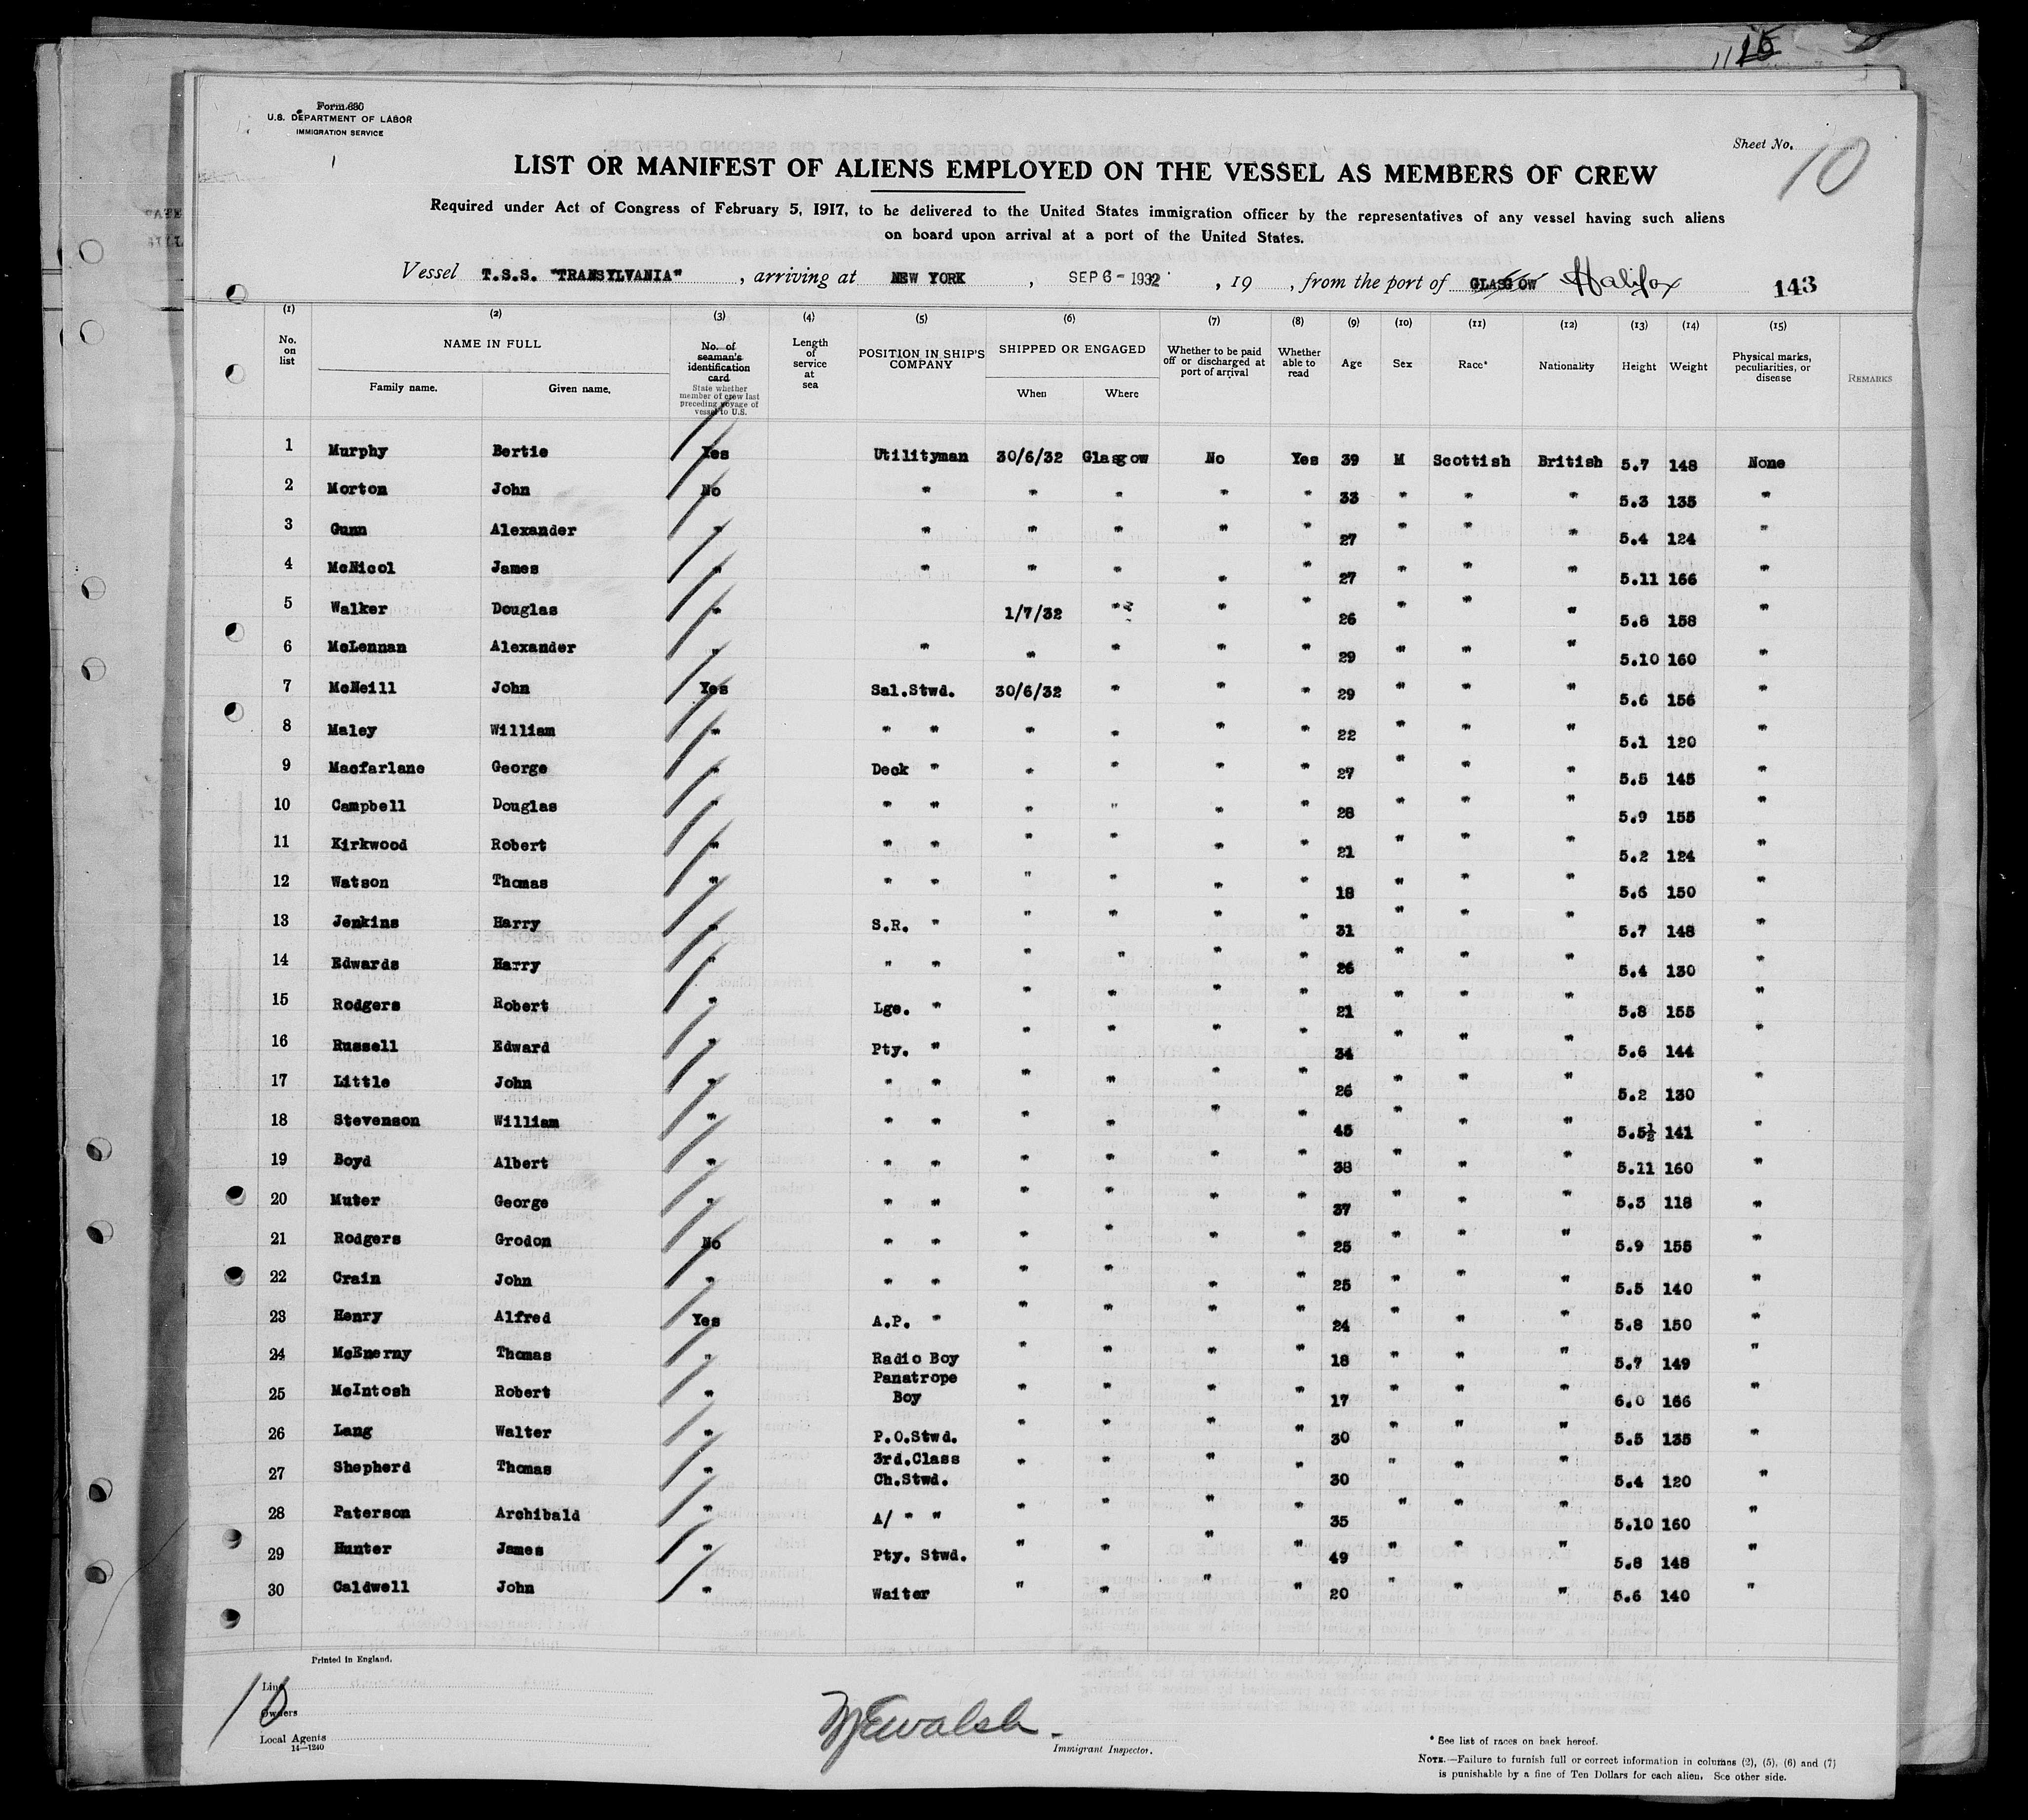 1116
Form 680
U.S. DEPARTMENT OF LABOR
IMMIGRATION SERVICE
Sheet No. 10
LIST OR MANIFEST OF ALIENS EMPLOYED ON THE VESSEL AS MEMBERS OF CREW
Required under Act of Congress of February 5, 1917, to be delivered to the United States immigration officer by the representatives of any vessel having such aliens
on board upon arrival at a port of the United States.
Vessel T.S.S. "TRANSYLVANIA", arriving at NEW YORK, SEP 6 - 1932, 19 , from the port of GLASGOW Halifax 143
(1) (2) (3) (4) (5) (6) (7) (8) (9) (10) (11) (12) (13) (14) (15)
No. on list NAME IN FULL Family name. Given name. No. of seaman's identification card State whether member of crew last preceding voyage of vessel to U.S. Length of service at sea POSITION IN SHIP'S COMPANY SHIPPED OR ENGAGED When Where Whether to be paid off or discharged at port of arrival Whether able to read Age Sex Race* Nationality Height Weight Physical marks, peculiarities, or disease REMARKS
1 Murphy Bertie Yes Utilityman 30/6/32 Glasgow No Yes 39 M Scottish British 5.7 148 None
2 Morton John No " " " " " 33 " " " 5.3 135 "
3 Gunn Alexander " " " " " " 27 " " " 5.4 124 "
4 McNicol James " " " " " " 27 " " " 5.11 166 "
5 Walker Douglas " 1/7/32 " " " 26 " " " 5.8 158 "
6 McLennan Alexander " " " " " " 29 " " " 5.10 160 "
7 McNeill John Yes Sal.Stwd. 30/6/32 " " " 29 " " " 5.6 156 "
8 Maley William " " " " " " " 22 " " " 5.1 120 "
9 Macfarlane George " Deck " " " " " 27 " " " 5.5 145 "
10 Campbell Douglas " " " " " " " 28 " " " 5.9 155 "
11 Kirkwood Robert " " " " " " " 21 " " " 5.2 124 "
12 Watson Thomas " " " " " " " 18 " " " 5.6 150 "
13 Jenkins Harry " S.R. " " " " " 31 " " " 5.7 148 "
14 Edwards Harry " " " " " " " 26 " " " 5.4 130 "
15 Rodgers Robert " Lge. " " " " " 21 " " " 5.8 155 "
16 Russell Edward " Pty. " " " " " 34 " " " 5.6 144 "
17 Little John " " " " " " " 26 " " " 5.2 130 "
18 Stevenson William " " " " " " " 45 " " " 5.5½ 141 "
19 Boyd Albert " " " " " " " 38 " " " 5.11 160 "
20 Muter George " " " " " " " 37 " " " 5.3 118 "
21 Rodgers Grodon No " " " " " " 25 " " " 5.9 155 "
22 Crain John " " " " " " " 25 " " " 5.5 140 "
23 Henry Alfred Yes A.P. " " " " " 24 " " " 5.8 150 "
24 McEnerny Thomas " Radio Boy " " " " 18 " " " 5.7 149 "
25 McIntosh Robert " Panatrope Boy " " " " 17 " " " 6.0 166 "
26 Lang Walter " P.O.Stwd. " " " " 30 " " " 5.5 135 "
27 Shepherd Thomas " 3rd.Class Ch.Stwd. " " " " 30 " " " 5.4 120 "
28 Paterson Archibald " A/ " " " " " " 35 " " " 5.10 160 "
29 Hunter James " Pty. Stwd. " " " " 49 " " " 5.8 148 "
30 Caldwell John " Waiter " " " " 20 " " " 5.6 140 "
Printed in England.
10
Line
Owners
Local Agents
14—1240
Immigrant Inspector.
* See list of races on back hereof.
NOTE.—Failure to furnish full or correct information in columns (2), (5), (6) and (7)
is punishable by a fine of Ten Dollars for each alien. See other side.